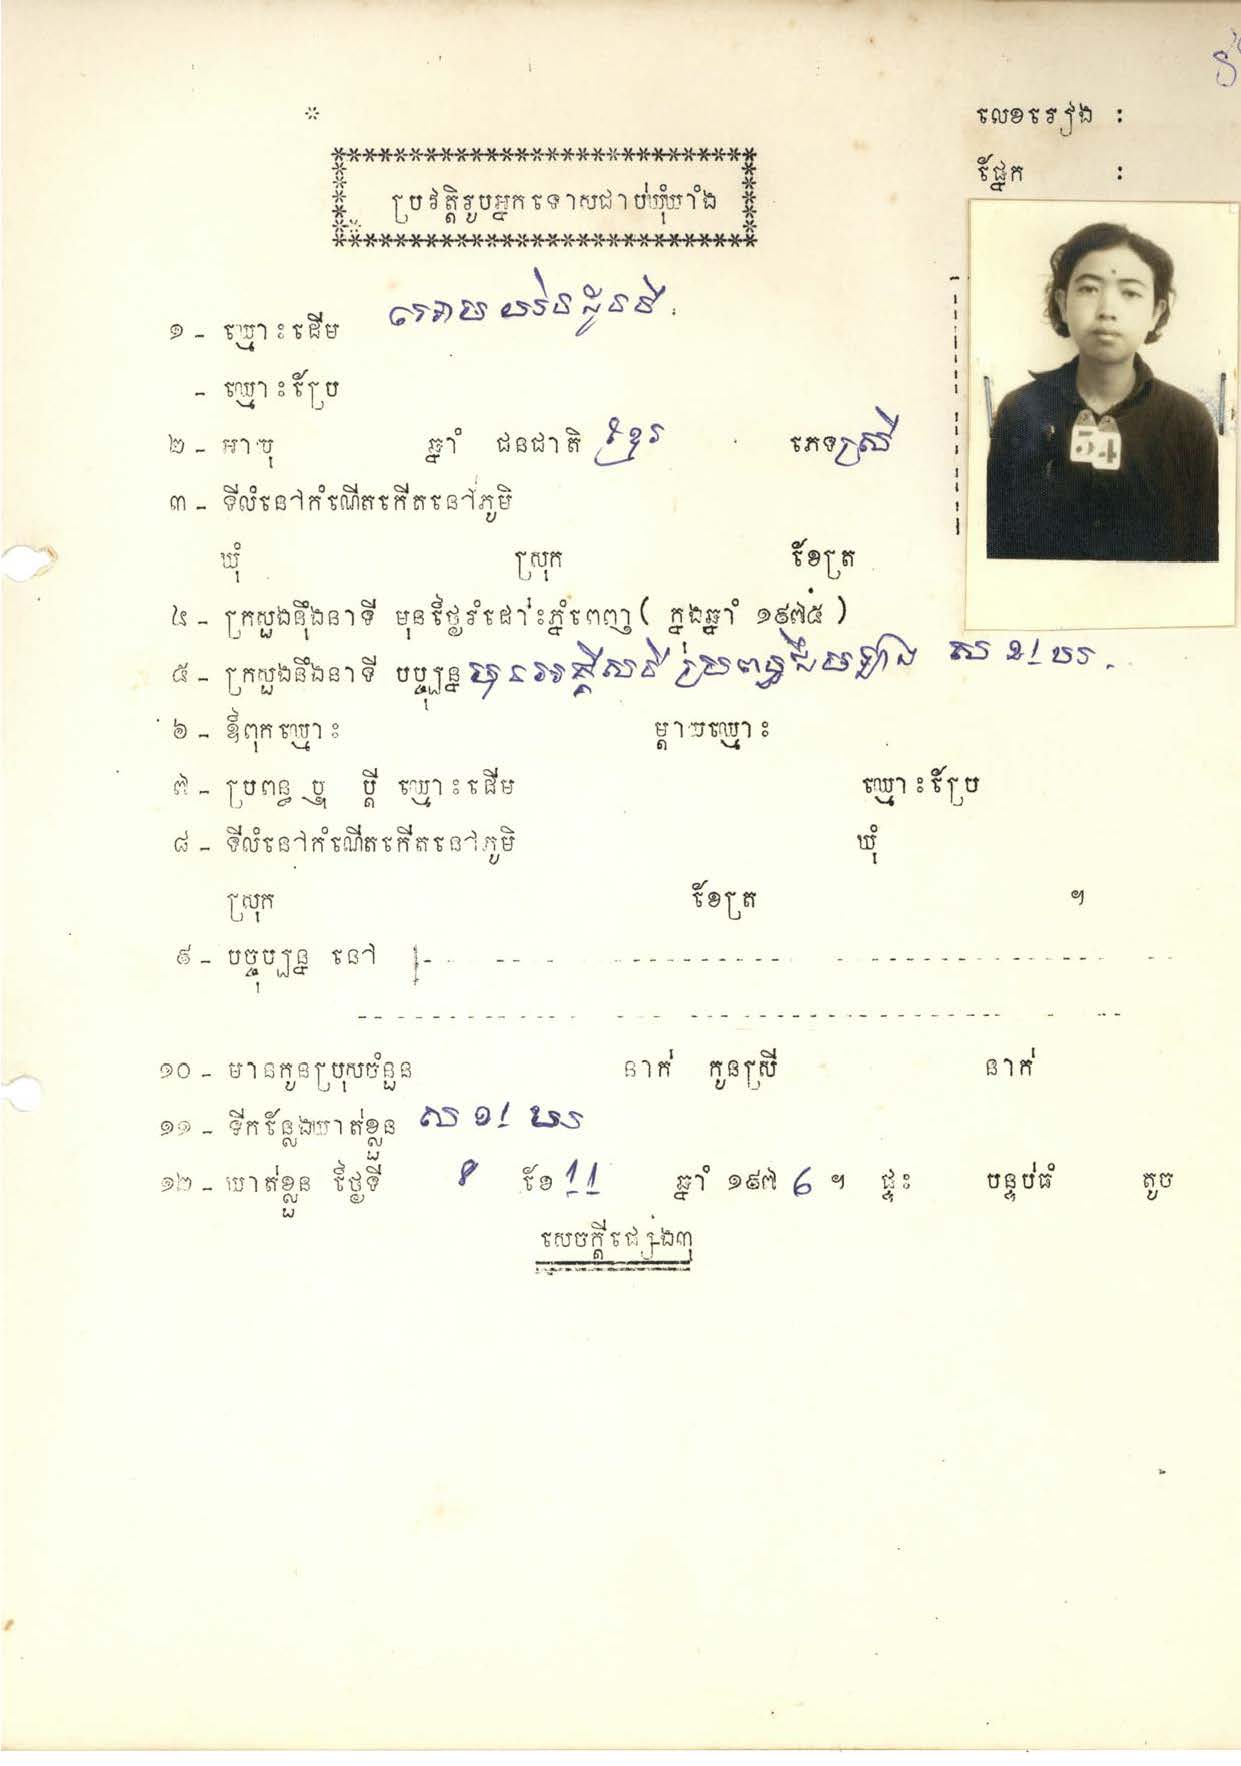 លេខរៀង :
ផ្នែក :
ប្រវត្តិរូបអ្នកទោសជាប់ឃុំឃាំង
54
១ - ឈ្មោះដើម
- ឈ្មោះប្រែ
២ - អាយុ ឆ្នាំ ជនជាតិ ខ្មែរ ភេទ ស្រី
៣ - ទីលំនៅកំណើតកើតនៅភូមិ
ឃុំ ស្រុក ខែត្រ
៤ - ក្រសួងនឹងនាទី មុនថ្ងៃរំដោះភ្នំពេញ ( ក្នុងឆ្នាំ ១៩៧៥ )
៥ - ក្រសួងនឹងនាទី បច្ចុប្បន្ន
៦ - ឪពុកឈ្មោះ ម្តាយឈ្មោះ
៧ - ប្រពន្ធ ឬ ប្តី ឈ្មោះដើម ឈ្មោះប្រែ
៨ - ទីលំនៅកំណើតកើតនៅភូមិ ឃុំ
ស្រុក ខែត្រ ។
៩ - បច្ចុប្បន្ន នៅ
១០ - មានកូនប្រុសចំនួន នាក់ កូនស្រី នាក់
១១ - ទីកន្លែងឃាត់ខ្លួន
១២ - ឃាត់ខ្លួន ថ្ងៃទី 8 ខែ 11 ឆ្នាំ ១៩៧6 ។ ផ្ទះ បន្ទប់ធំ តូច
សេចក្តីផ្សេងៗ